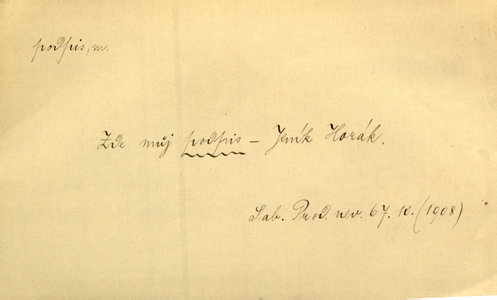 podpis, m.
Zde můj podpis – Jeník Horák.
Sab. Prod. nev. 67. 10. (1908)